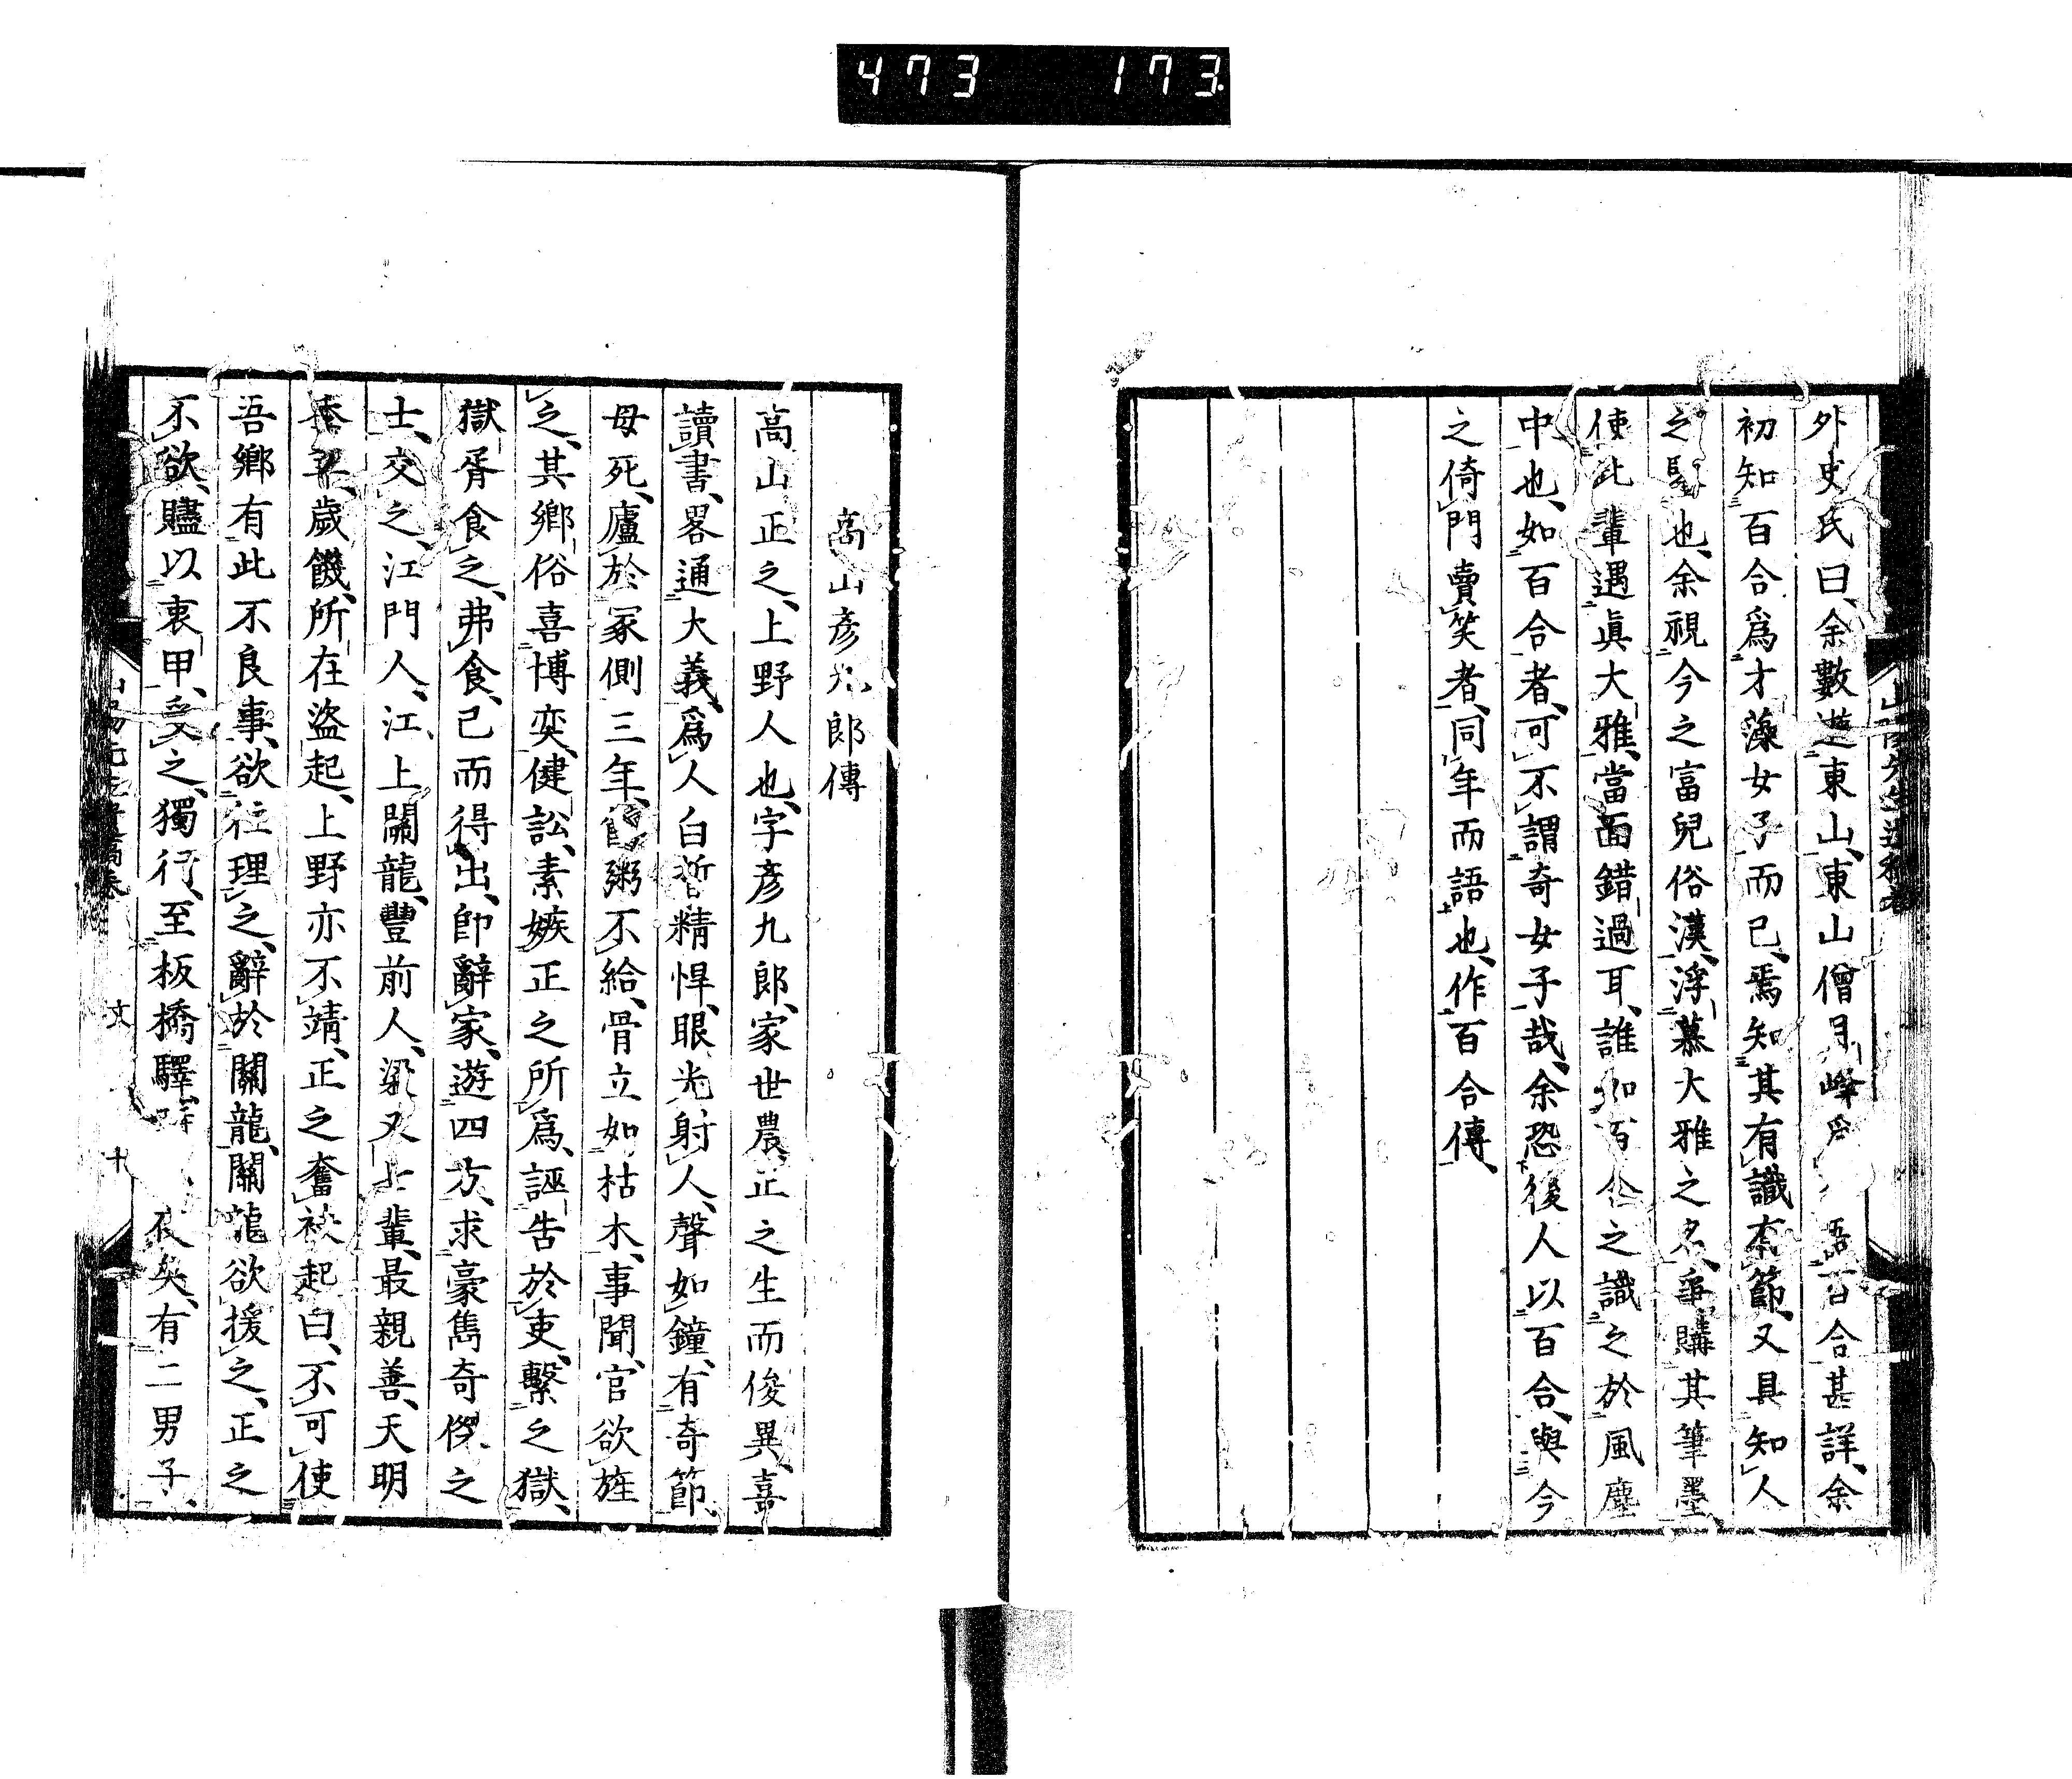 473 173
外史氏曰、余數遊東山、東山僧月峰爲 語百合甚詳、余
初知百合爲才藻女子而已、焉知其有識有節、又具知人
之賢也、余視今之富兒俗漢、浮慕大雅之名、爭購其筆墨
使此輩遇眞大雅、當面錯過耳、誰如百合之識之於風塵
中也、如百合者、可不謂奇女子哉、余恐後人以百合、與今
之倚門賣笑者、同年而語也、作百合傳、
高山彥九郎傳
高山正之、上野人也、字彥九郎、家世農、正之生而俊異、喜
讀書、畧通大義、爲人白皙精悍、眼光射人、聲如鐘、有奇節、
母死、廬於冢側三年、饘粥不給、骨立如枯木、事聞、官欲旌
之、其鄉俗喜博奕、健訟、素嫉正之所爲、誣告於吏、繫之獄、
獄胥食之、弗食、已而得出、卽辭家、遊四方、求豪雋奇傑之
士、交之、江門人、江上關龍、豐前人、簗又七輩、最親善、天明
季年、歲饑、所在盜起、上野亦不靖、正之奮袂起曰、不可使
吾鄉有此不良事、欲往理之、辭於關龍、關龍欲援之、正之
不欲、贐以衷甲、受之、獨行、至板橋驛、 夜矣、有二男子、
文 十